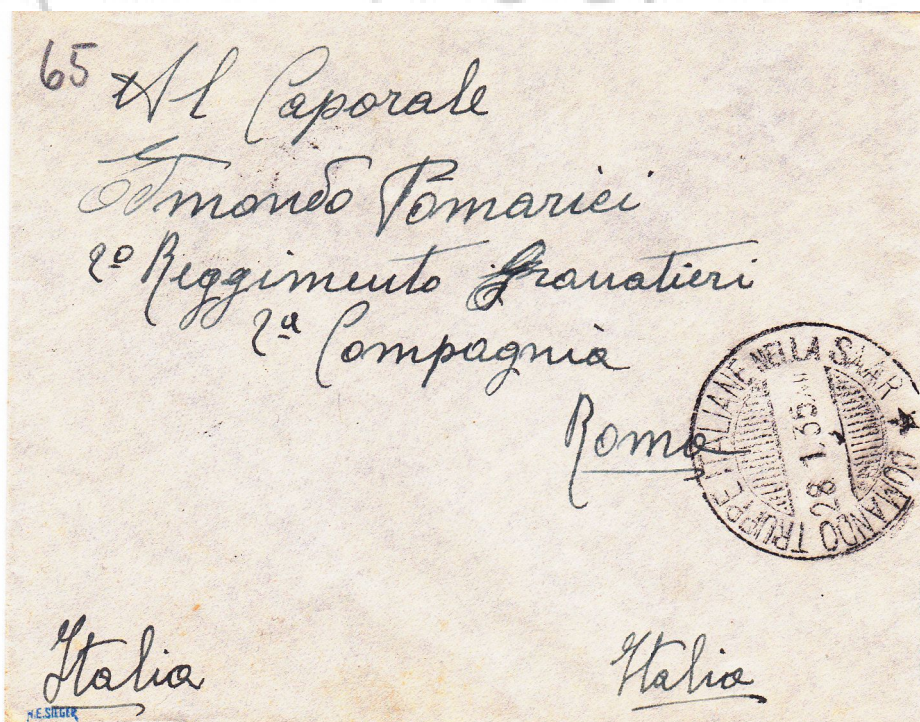 65
Al Caporale
Edmondo Pomarici
2º Reggimento Granatieri
2ª Compagnia
Roma
COMANDO TRUPPE ITALIANE NELLA SAAR
28 1.35
Italia
Italia
H.E.SIEGER